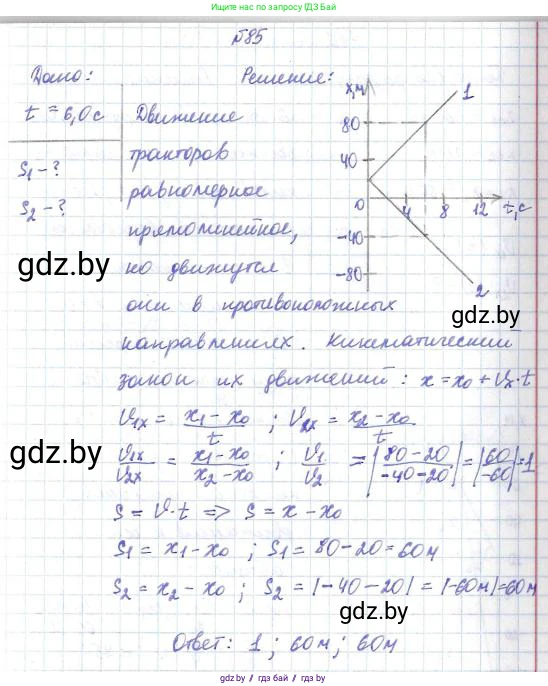 Ищите по запросу ГДЗ гдз.бай
№85
Дано:
Решение:
t = 6,0 с
S₁ - ?
S₂ - ?
Движение
тракторов
равномерное
прямолинейное,
но движутся
они в противоположных
направлениях. Кинематический
закон их движений: x = x₀ + Vₓ·t
x,м
1
80
40
0
4
8
12
t,с
-40
-80
2
gdz.by
gdz.by
V₁ₓ = (x₁ - x₀)/t ; V₂ₓ = (x₂ - x₀)/t
gdz.by
V₁ₓ/V₂ₓ = (x₁ - x₀)/(x₂ - x₀) ; V₁/V₂ = |(80 - 20)/(-40 - 20)| = |60/-60| = 1
S = V·t => S = x - x₀
S₁ = x₁ - x₀ ; S₁ = 80 - 20 = 60 м
S₂ = x₂ - x₀ ; S₂ = |-40 - 20| = |-60 м| = 60 м
gdz.by
Ответ: 1 ; 60 м ; 60 м
gdz.by / гдз.бай / gdz.by